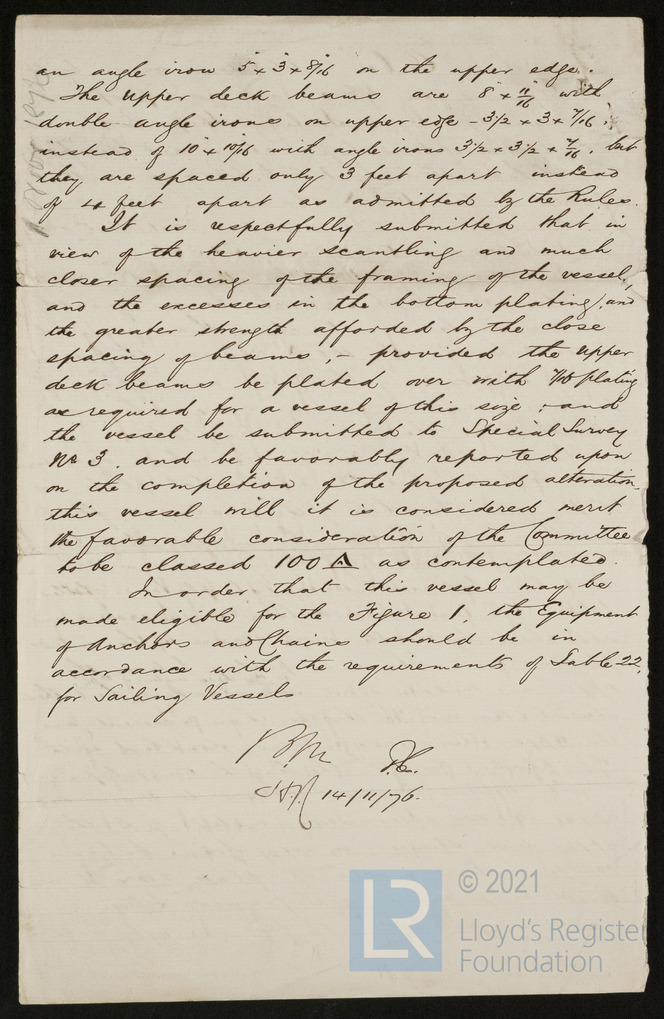 an angle iron 5" x 3" x 8/16 on the upper edge.
The upper deck beams are 8" x 11/16" with
double angle irons on upper edge - 3 1/2 x 3 x 7/16,
instead of 10" x 10/16 with angle irons 3 1/2 x 3 1/2 x 7/16, but
they are spaced only 3 feet apart instead
of 4 feet apart as admitted by the Rules.
It is respectfully submitted that in
view of the heavier scantling and much
closer spacing of the framing of the vessel,
and the excesses in the bottom plating, and
the greater strength afforded by the close
spacing of beams, - provided the upper
deck beams be plated over with plating
as required for a vessel of this size; and
the vessel be submitted to Special Survey
No 3. and be favorably reported upon
on the completion of the proposed alteration,
this vessel will it is considered merit
the favorable consideration of the Committee
to be classed 100 A as contemplated.
In order that this vessel may be
made eligible for the Figure 1, the Equipment
of Anchors and Chains should be in
accordance with the requirements of Table 22,
for Sailing Vessels
B.M.
14/11/76.
LR
© 2021
Lloyd's Register
Foundation